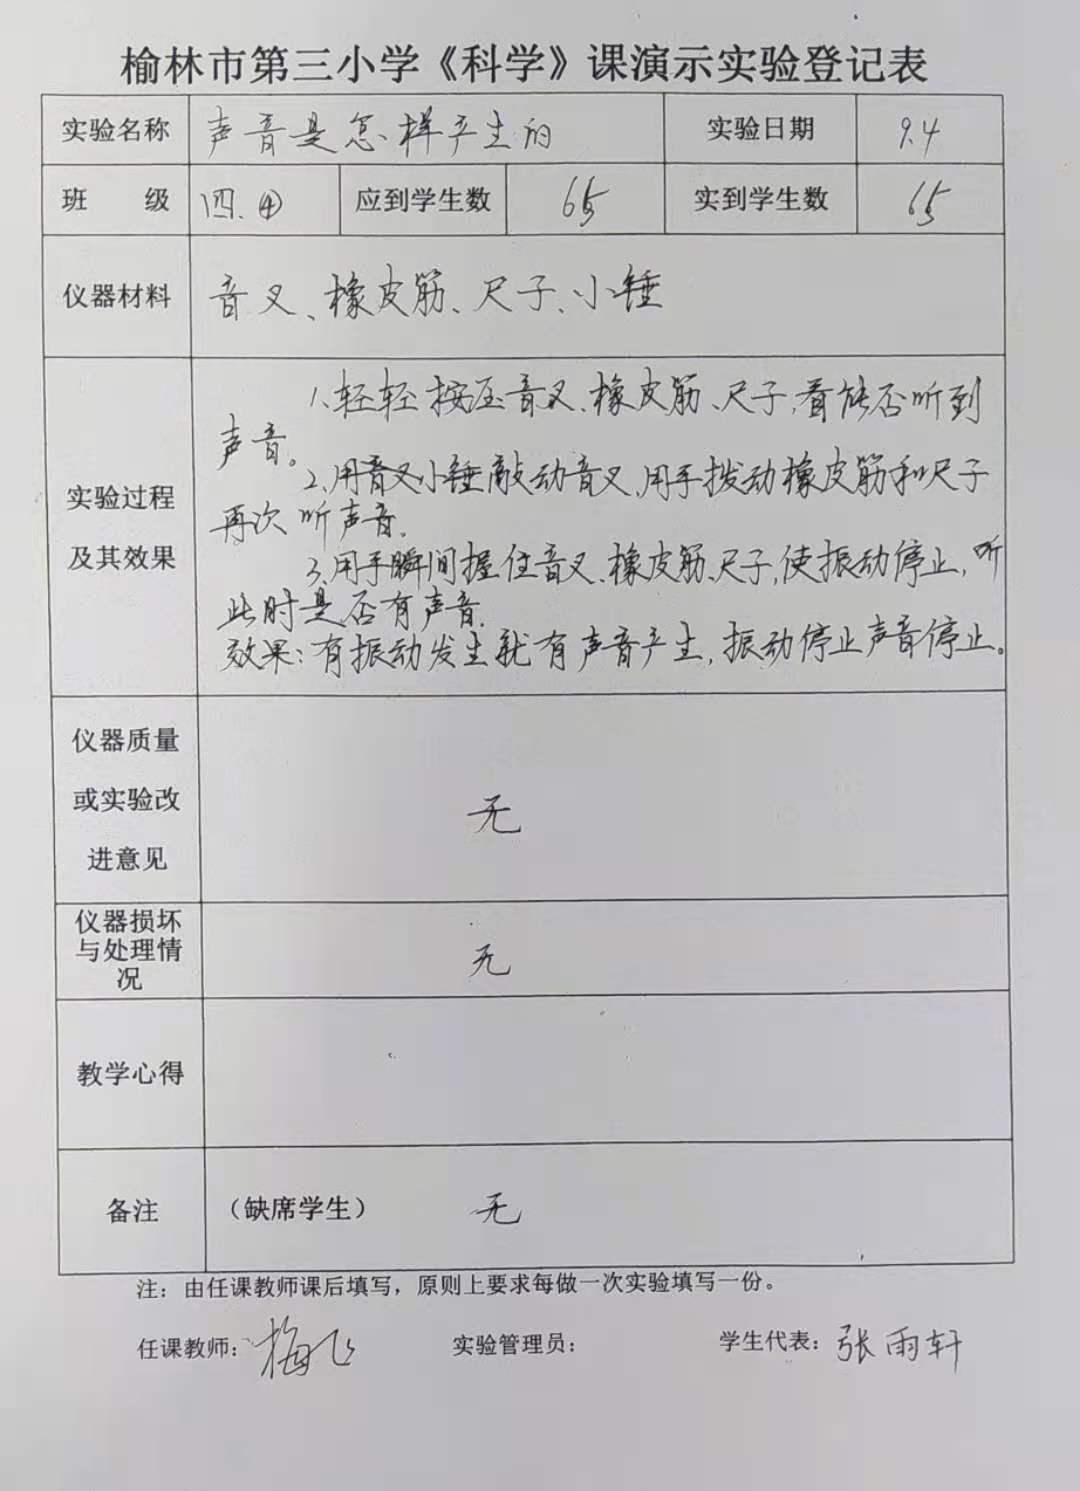 榆林市第三小学《科学》课演示实验登记表
实验名称 声音是怎样产生的 实验日期 9.4
班 级 四.④ 应到学生数 65 实到学生数 65
仪器材料 音叉、橡皮筋、尺子、小锤
1.轻轻按压音叉、橡皮筋、尺子,看能否听到
声音。
2.用音叉小锤敲动音叉,用手拨动橡皮筋和尺子
实验过程
再次听声音.
及其效果
3.用手瞬间握住音叉、橡皮筋、尺子,使振动停止,听
此时是否有声音.
效果:有振动发生就有声音产生,振动停止声音停止。
仪器质量
或实验改
进意见
无
仪器损坏
与处理情
况
无
教学心得
备注 (缺席学生) 无
注:由任课教师课后填写,原则上要求每做一次实验填写一份。
任课教师:梅飞 实验管理员: 学生代表:张雨轩